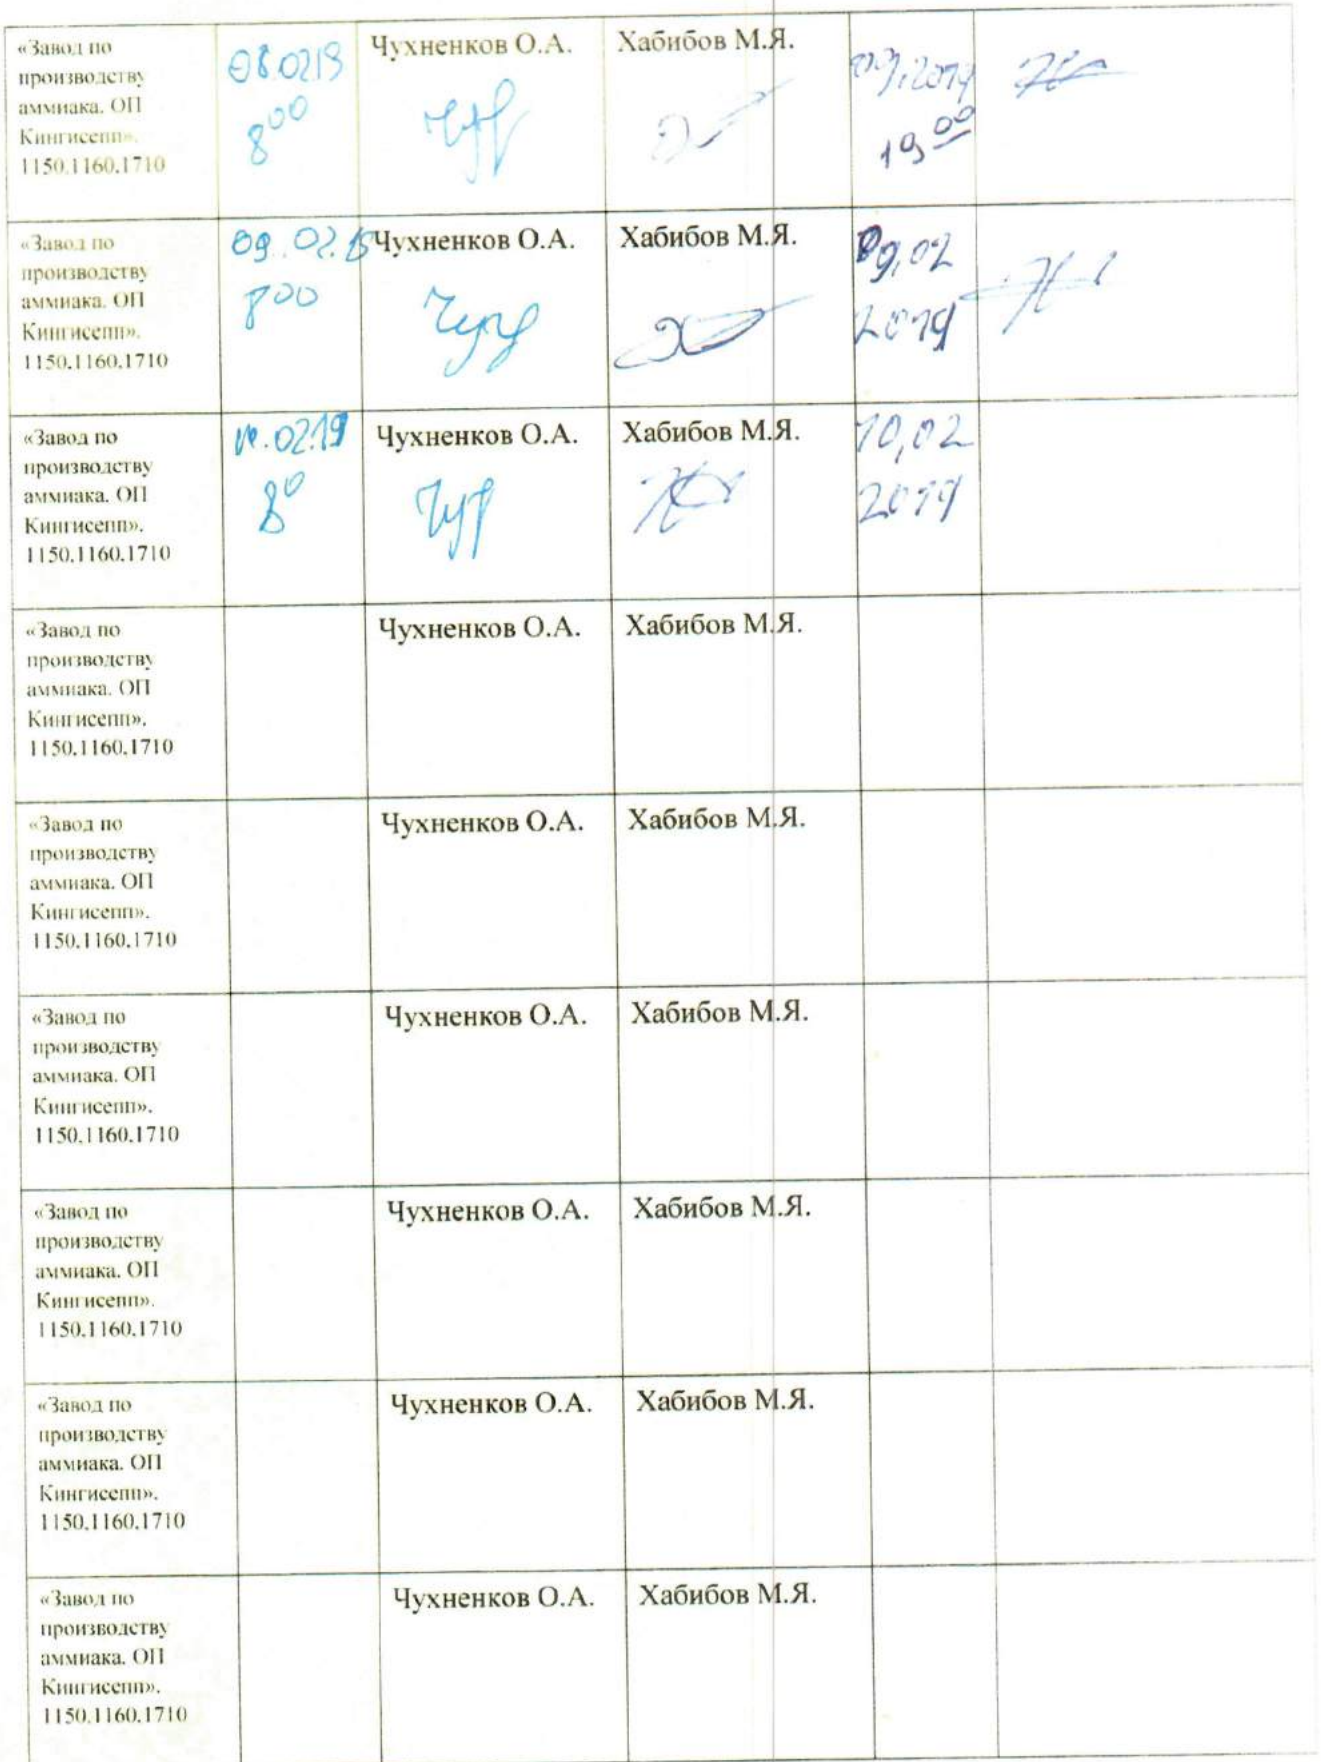 «Завод по
производству
аммиака. ОП
Кингисепп».
1150.1160.1710
08.0219
8 00
Чухненков О.А.
Хабибов М.Я.
19 00
«Завод по
производству
аммиака. ОП
Кингисепп».
1150.1160.1710
09.02.
8 00
Чухненков О.А.
Хабибов М.Я.
09,02
2019
«Завод по
производству
аммиака. ОП
Кингисепп».
1150.1160.1710
10.0219
8 0
Чухненков О.А.
Хабибов М.Я.
10,02
2019
«Завод по
производству
аммиака. ОП
Кингисепп».
1150.1160.1710
Чухненков О.А.
Хабибов М.Я.
«Завод по
производству
аммиака. ОП
Кингисепп».
1150.1160.1710
Чухненков О.А.
Хабибов М.Я.
«Завод по
производству
аммиака. ОП
Кингисепп».
1150.1160.1710
Чухненков О.А.
Хабибов М.Я.
«Завод по
производству
аммиака. ОП
Кингисепп».
1150.1160.1710
Чухненков О.А.
Хабибов М.Я.
«Завод по
производству
аммиака. ОП
Кингисепп».
1150.1160.1710
Чухненков О.А.
Хабибов М.Я.
«Завод по
производству
аммиака. ОП
Кингисепп».
1150.1160.1710
Чухненков О.А.
Хабибов М.Я.